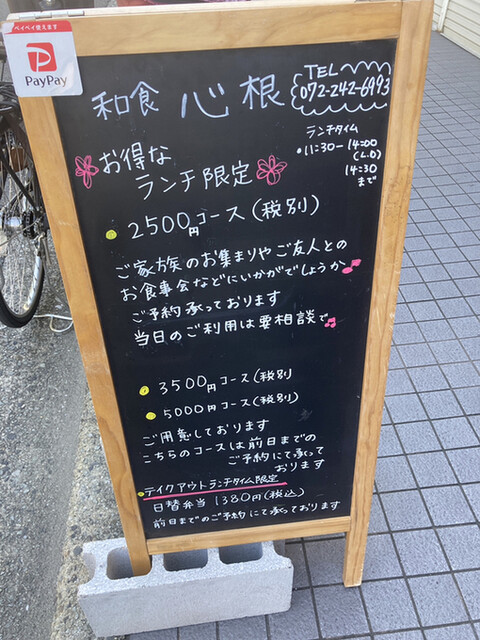 ペイペイ使えます
PayPay
和食 心根
TEL
072-242-6993
ランチタイム
•11:30-14:00
(L.O)
14:30
まで
お得な
ランチ限定
2500円コース(税別)
ご家族のお集まりやご友人との
お食事会などにいかがでしょうか
ご予約承っております
当日のご利用は要相談で
3500円コース(税別
5000円コース(税別)
ご用意しております
こちらのコースは前日までの
ご予約にて承って
おります
テイクアウトランチタイム限定
日替弁当 1380円(税込)
前日までのご予約にて承っております